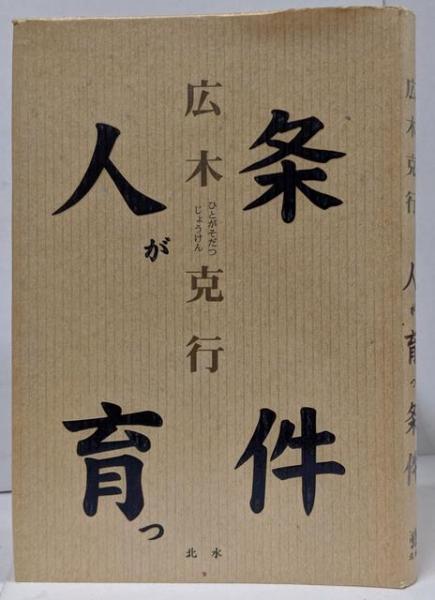 人が育つ
条件
広木克行
ひとがそだつ
じょうけん
北水
広木克行
人が育つ条件